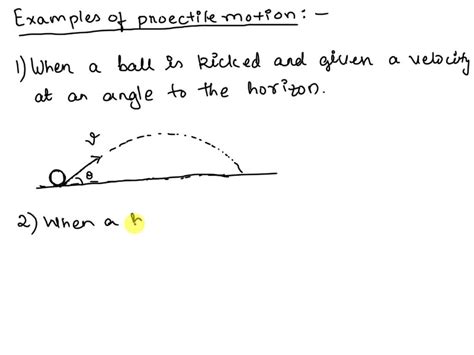 Examples of proectile motion :-
1) When a ball is kicked and given a velocity
at an angle to the horizon.
v
θ
2) When a